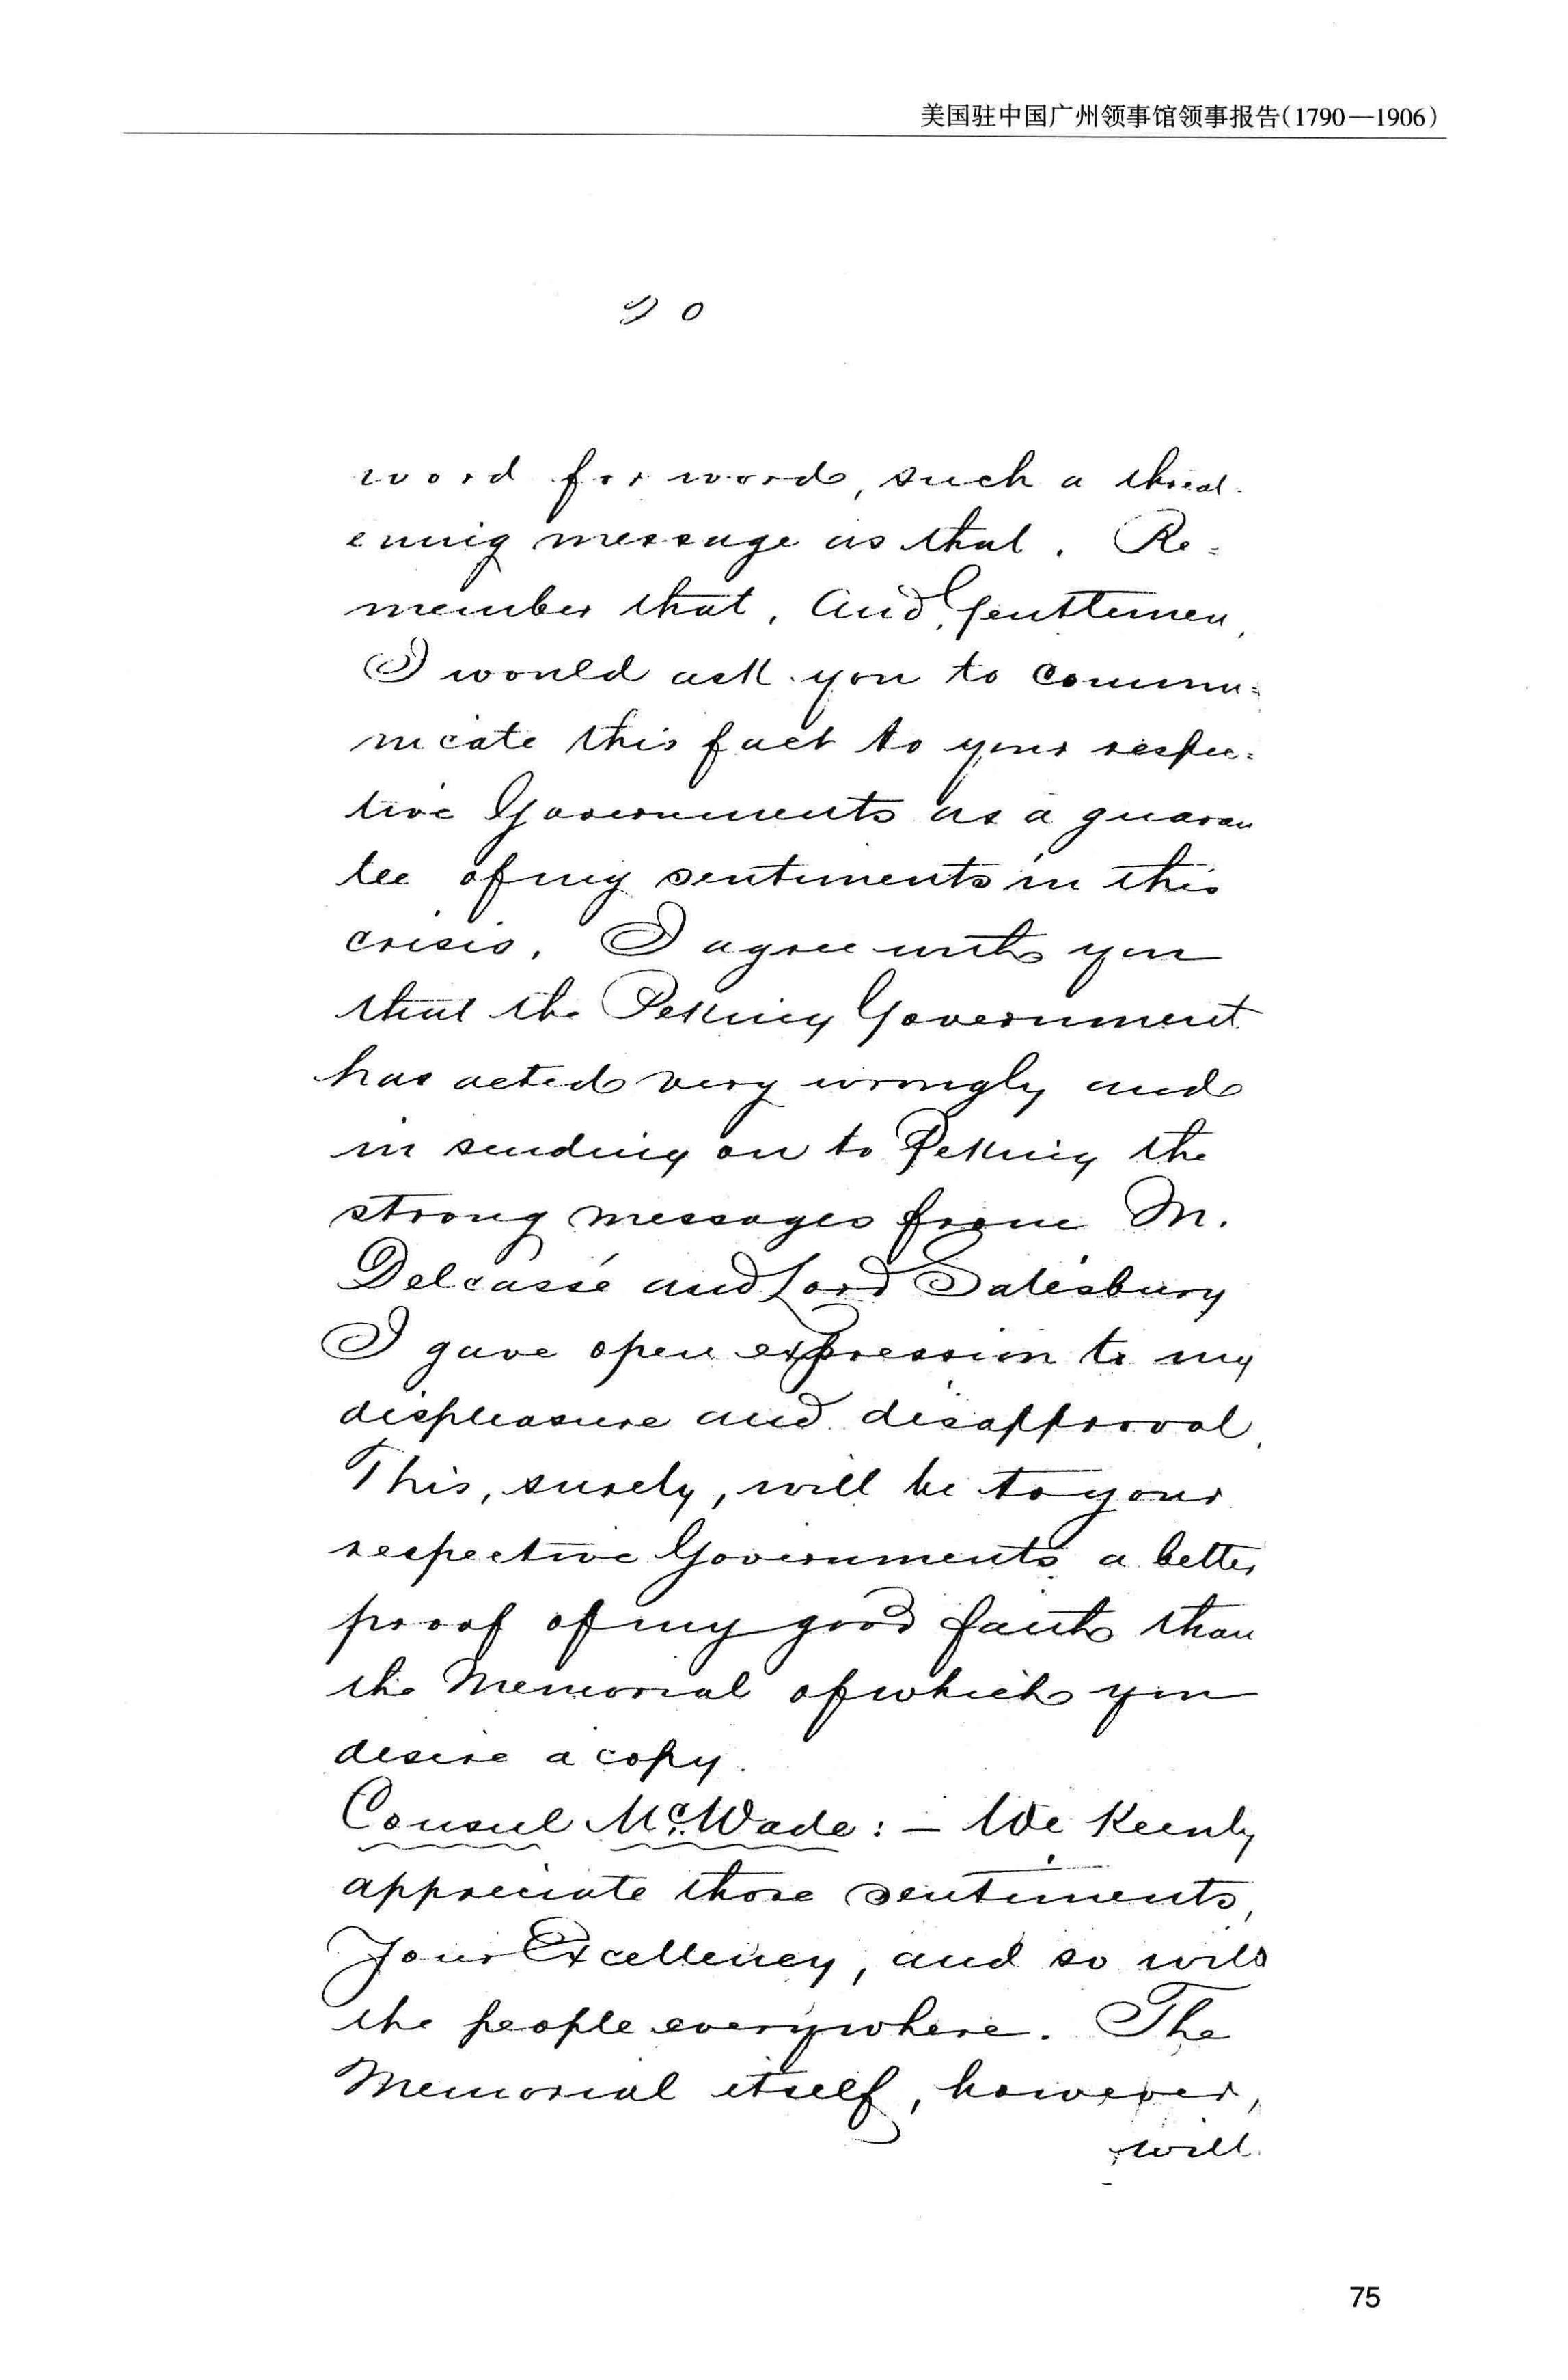 美国驻中国广州领事馆领事报告(1790—1906)
20
word for word, such a threat-
ening message as that. Re=
member that. And, Gentlemen,
I would ask you to commu=
nicate this fact to your respec=
tive Governments as a guaran
tee of my sentiments in this
crisis. I agree with you
that the Peking Government
has acted very wrongly and
in sending on to Peking the
strong messages from M.
Delcassé and Lord Salisbury
I gave open expression to my
displeasure and disapproval.
This, surely, will be to your
respective Governments a better
proof of my good faith than
the Memorial of which you
desire a copy.
Consul McWade: — We keenly
appreciate those sentiments,
Your Excellency, and so will
the people everywhere. The
Memorial itself, however,
will
75